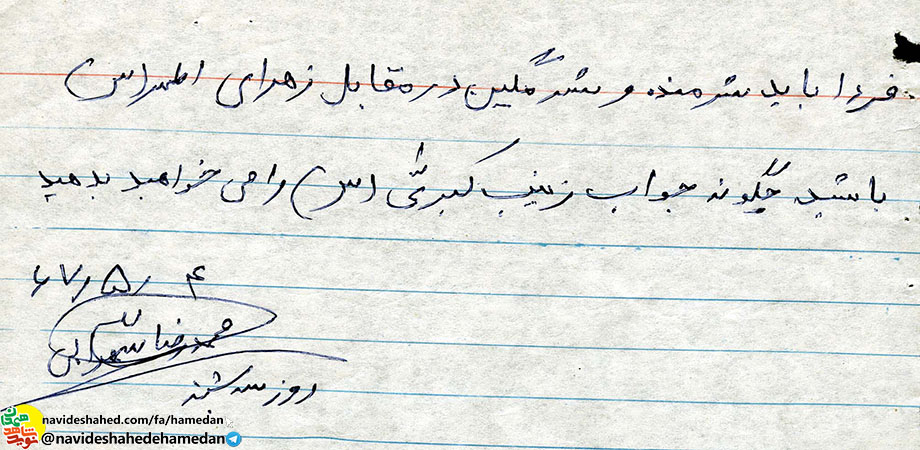 فردا باید شرمنده و شرمگین در مقابل زهرای اطهر(س)
باشید چگونه جواب زینب کبری (س) را می خواهید بدهید
۶۷٫۵٫۴
محمدرضا
روز سه شنبه
navideshahed.com/fa/hamedan
@navideshahedehamedan
نوید شاهد همدان